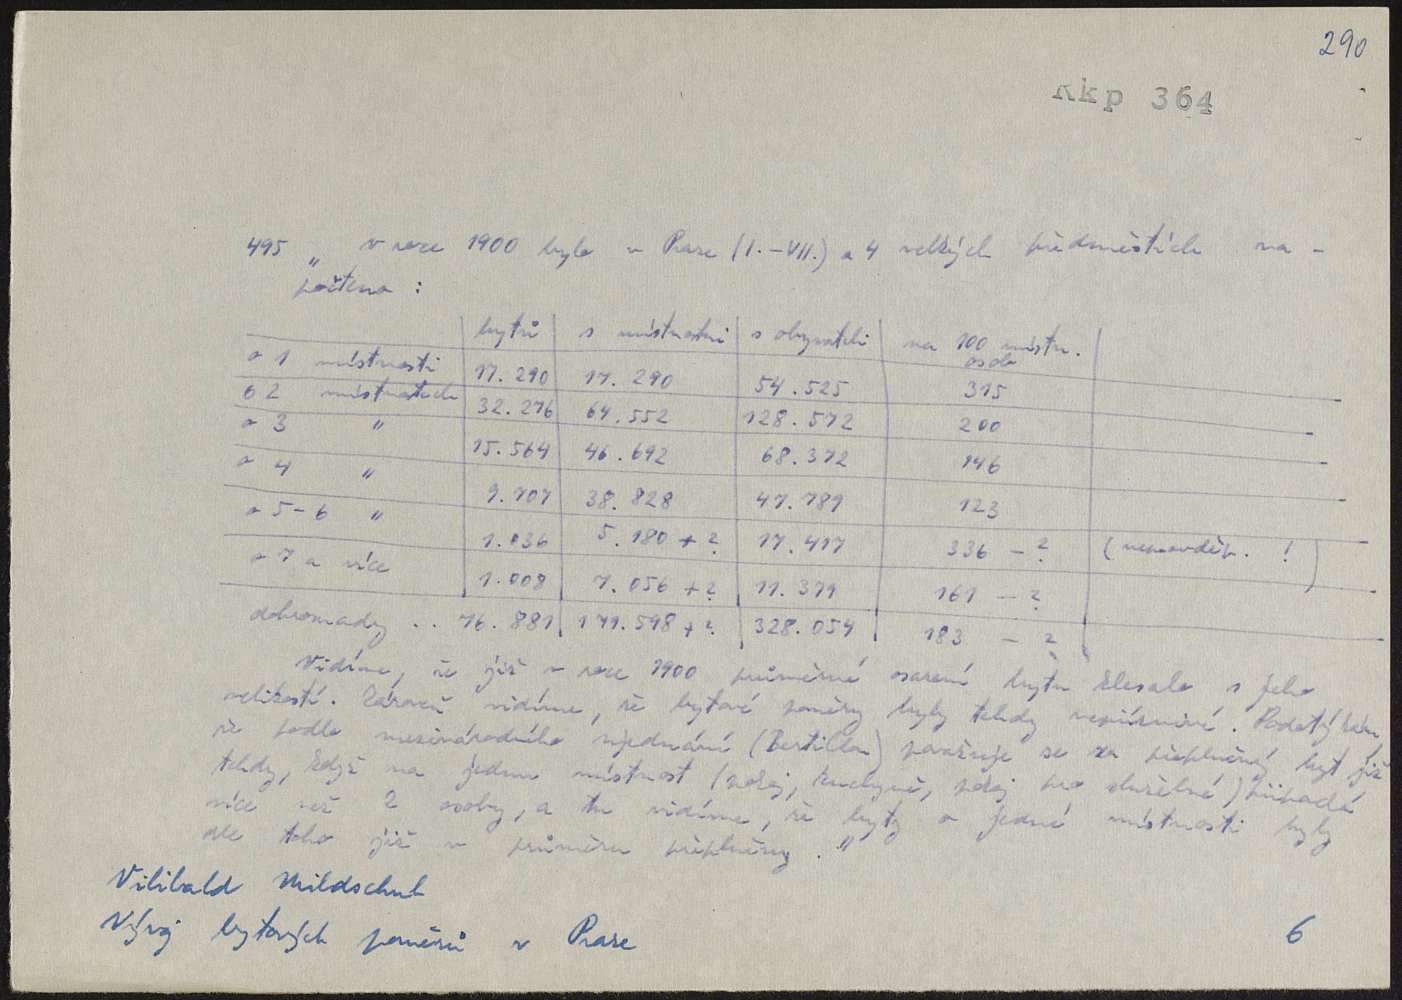 290
Rkp 364
495 „ v roce 1900 bylo v Praze (I.–VII.) a 4 velkých předměstích na-
počteno :
bytů s místnostmi s obyvateli na 100 místn. osob
o 1 místnosti 17.290 17.290 54.525 315
o 2 místnostech 32.276 64.552 128.572 200
o 3 " 15.564 46.692 68.372 146
o 4 " 9.707 38.828 47.789 123
o 5–6 " 1.036 5.180 + ? 17.417 336 – ? (nepravděp. !)
o 7 a více 1.008 7.056 + ? 11.379 161 – ?
dohromady .. 76.881 179.598 + ? 328.054 183 – ?
Vidíme, že již v roce 1900 průměrné osazení bytu klesalo s jeho
velikostí. Zároveň vidíme, že bytové poměry byly tehdy nepříznivé. Podotýkám,
že podle mezinárodního ujednání (Bertillon) považuje se za přeplněný byt již
tehdy, když na jednu místnost (pokoj, kuchyně, pokoj pro služebné) připadá
více než 2 osoby, a tu vidíme, že byty o jedné místnosti byly
dle toho již v průměru přeplněny."
Vilibald Mildschuh
Vývoj bytových poměrů v Praze
6